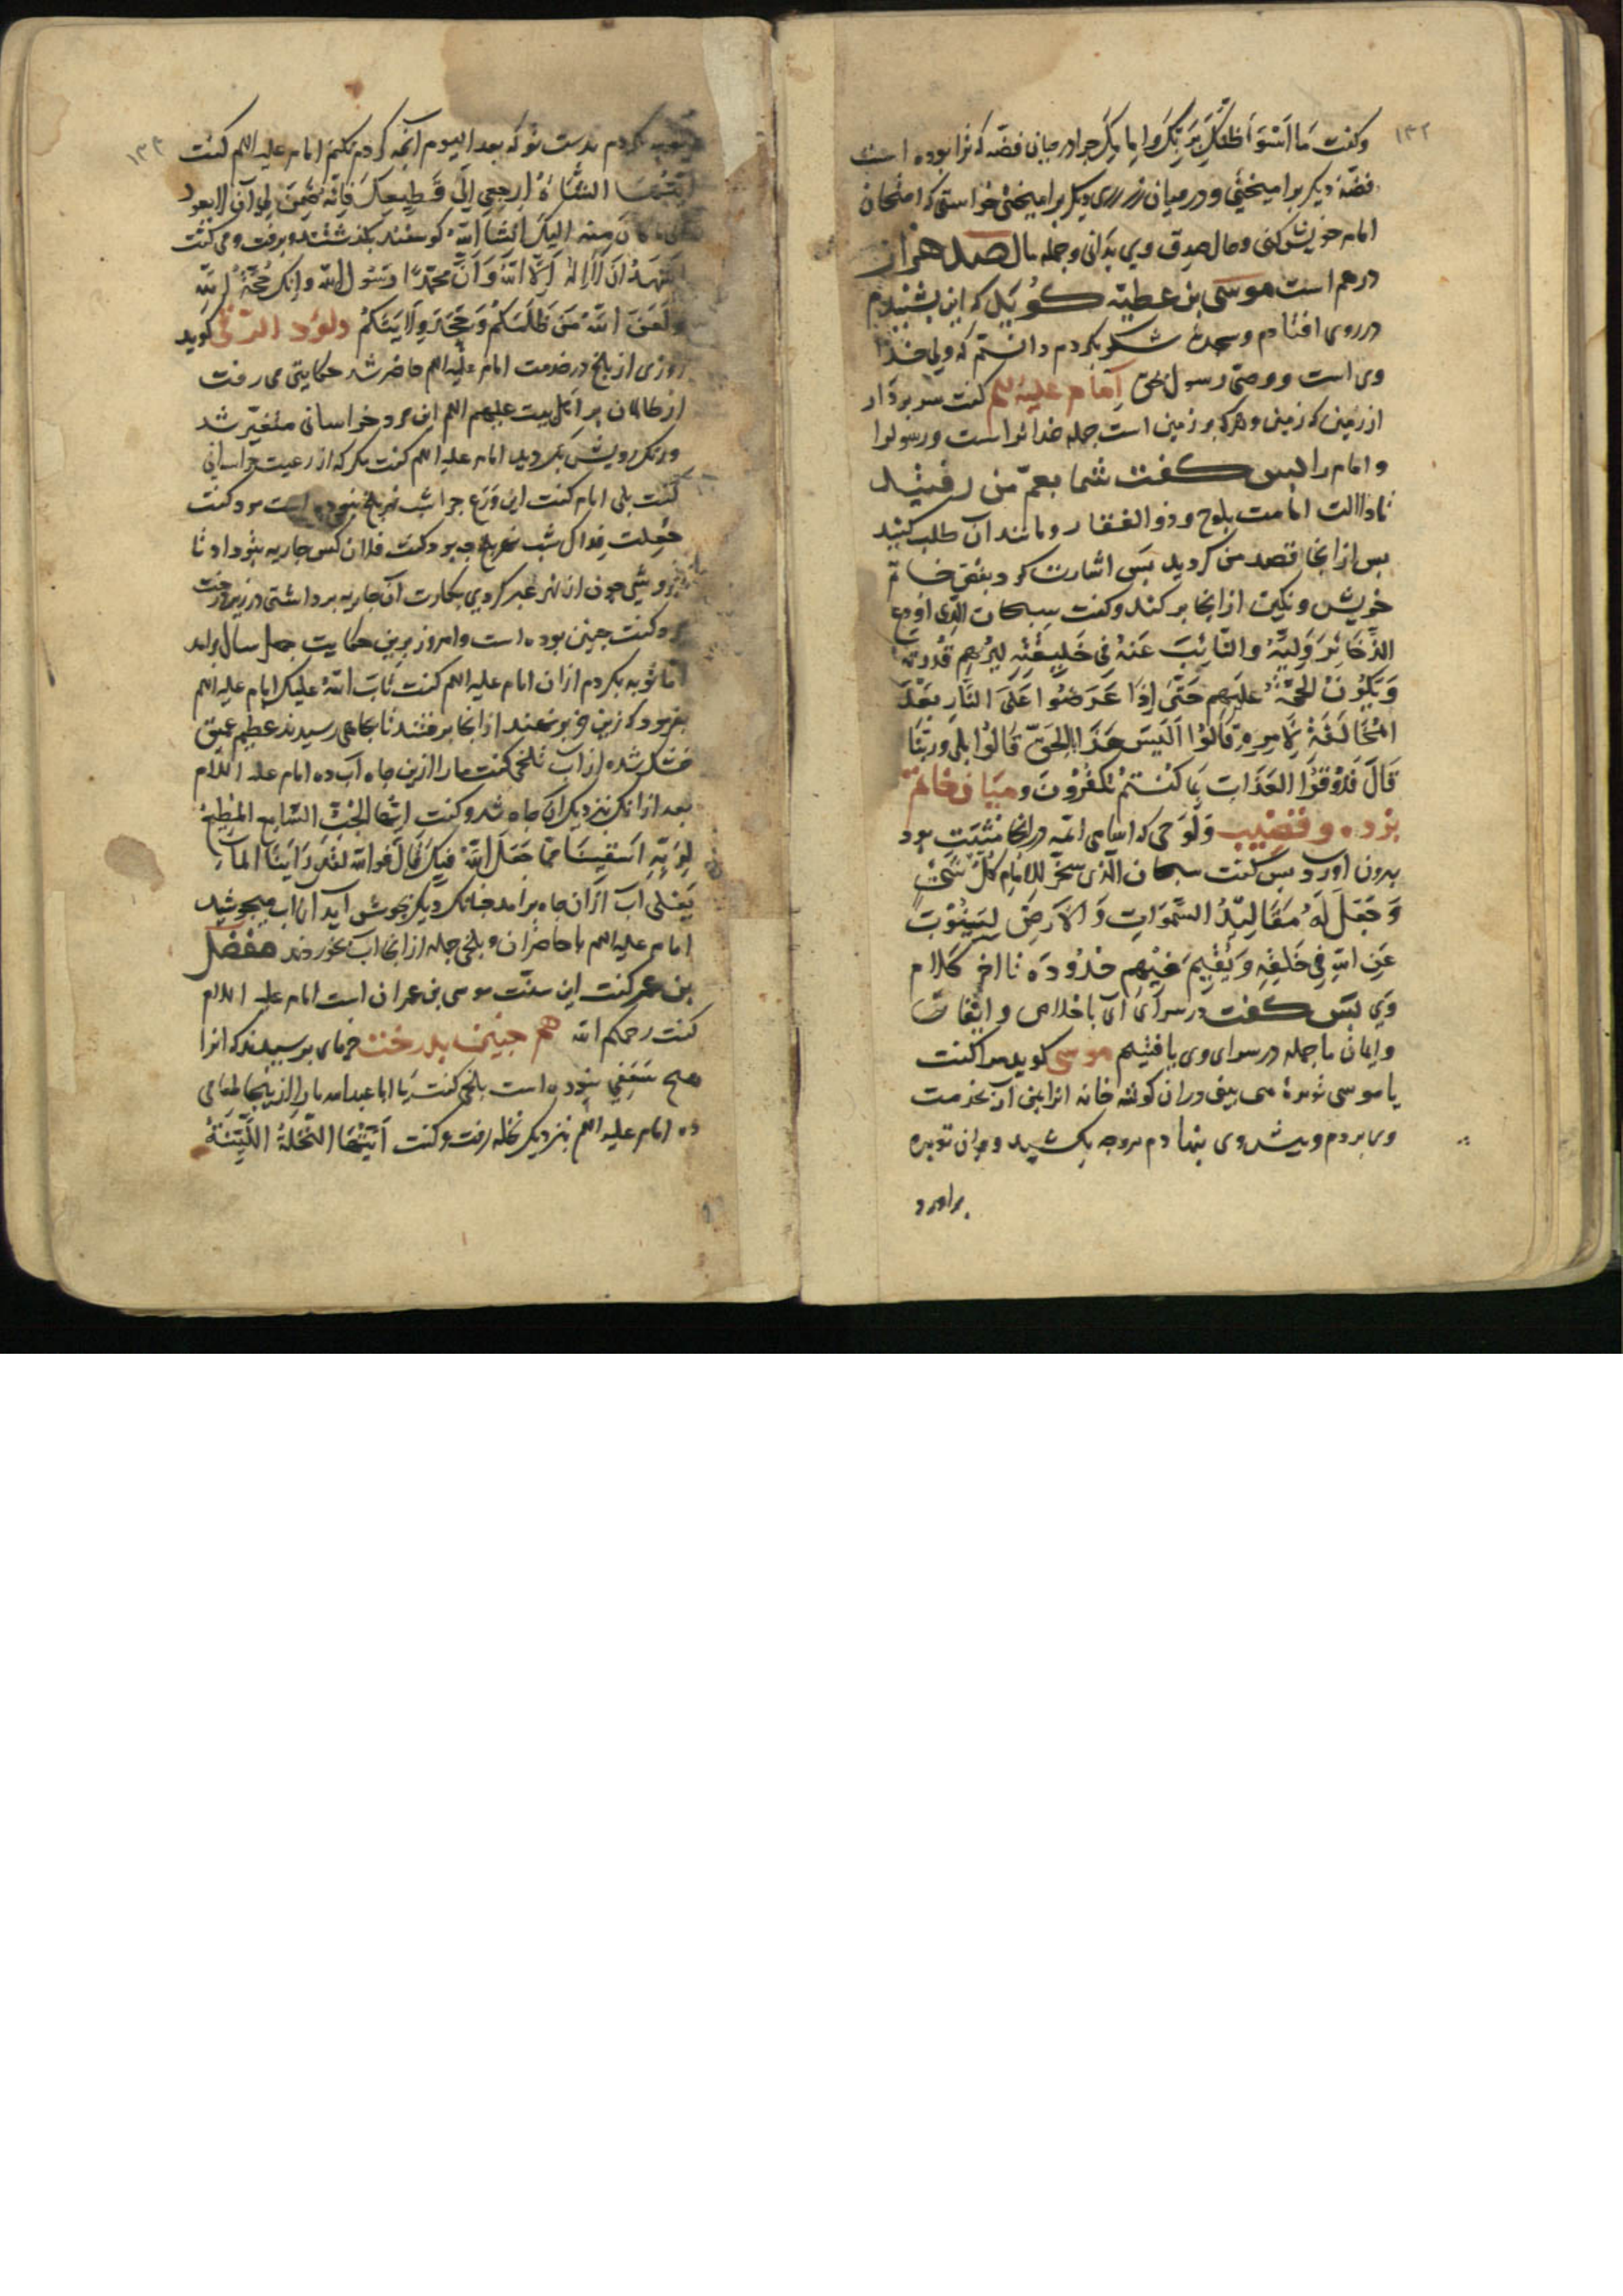 ۱۳۲
وکفت ما اسوا ظنک بربک وامامک چرا در میان فضّه که ترا بوده است
فضّه دیکر برامیختی و در میان زر زری دیکر برامیختی خواستی که امتحان
امام خویش کنی و حال صدق وی بدانی وجمله مال صد هزار
درهم است موسی بن عطیّه کوید که این بشنیدم
در روی افتادم و سجدهٔ شکر بکردم دانستم که ولی خدا
وی است و وصیّ رسول بحق امام علیه السلم کفت سر بردار
از زمین که زمین وهرکه بر زمین است جمله خدا تراست ورسول را
و امام را پس کفت شما بعمّ من رفتید
تا دلالت امامت بلوح و ذو الفقار و مانند آن طلب کنید
پس از انجا قصد من کردید پس اشارت کرد بفصّ خاتم
خویش و نکین از انجا برکند وکفت سبحان الذی اودع
الذخائر ولیّه والنائب عنه فی خلیقته لیریهم قدرته
ویکون الحجّة علیهم حتی اذا عرضوا علی النار بعد
المخالفة لامره قالوا الیس هذا بالحق قالوا بلی وربنا
قال فذوقوا العذاب بما کنتم تکفرون و میان خاتم
برده و قضیب ولوحی که اسامی ائمّه در انجا مثبت بود
بیرون اورد پس کفت سبحان الذی سخر للامام کل شیء
وجعل له مقالید السموات والارض لینوب
عن الله فی خلیقه ویقیم فیهم حدوده تا اخر کلام
وی پس کفت در سرای آی باخلاص و ایقان
وایمان ما جمله در سرای وی یافتیم موسی کوید مرا کفت
یا موسی توبرهٔ می بینی دران کوشه خانه انرا بمن آر بخدمت
وی بردم و پیش وی بنهادم مروحه بکشید و بران توبره
براورد
۱۳۳
توبه کردم بدست تو که بعد الیوم آنچه کردم نکنم امام علیه السلم کفت
ایتها الشاة ارجعی الی قطیعک فانه ضمن لی ان لا یعود
کان منه الیک انشا الله کوسفند بکذشتند و برفت و می کفت
اشهد ان لا اله الا الله وان محمدا رسول الله وانک حجة الله
ولعن الله من ظلمکم وجحد ولایتکم داود الرقی کوید
روزی از بلخ در خدمت امام علیه السلم حاضر شد حکایتی می رفت
از ظالمان بر اهل بیت علیهم السلم این مرد خراسانی متغیّر شد
ورنک رویش بکردید امام علیه السلم کفت مکر که از رعیت خراسانی
کفت بلی امام کفت این ورع چرا شب نهر بلخ نبوده است مرد کفت
جعلت فداک شب نهر بلخ چه بود کفت فلان کس جاریه بتو داد تا
بفروشی چون از نهر عبر کردی بکارت آن جاریه برداشتی در زیر درخت
مرد کفت چنین بوده است وامروز برین حکایت چهل سال برامد
اما توبه بکردم از ان امام علیه السلم کفت تاب الله علیک امام علیه السلم
بفرمود که زین خر برنهند از انجا برفتند تا بجاهی رسیدند عظیم عمیق
خشک شده از آب بلخی کفت ما را ازین چاه آب ده امام علیه السلام
بعد از انک بنزدیک ان چاه شد وکفت ایتها الجب السامع المطیع
لربه اسقینا مما جعل الله فیک قال فوالله لقد راینا الماء
یغلی آب از ان چاه برامد چنانک دیک بجوش آید آن اب میجوشید
امام علیه السلم با حاضران و بلخی جمله از انجا آب بخوردند مفضل
بن عمر کفت این سنّت موسی بن عمران است امام علیه السلام
کفت رحمکم الله هم چنین بدرخت خرمای برسیدند که انرا
هیچ سعفی نبوده است بلخی کفت یا ابا عبدالله ما را ازینجا طعامی
ده امام علیه السلم بنزدیک نخله رفت وکفت ایتها النخلة اللینة